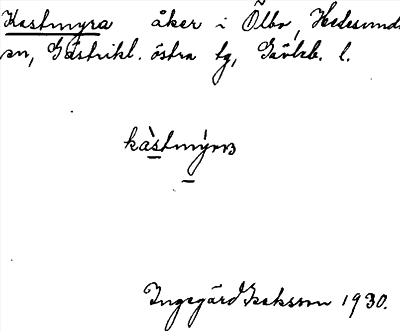 Kastmyra åker i Ölbo, Hedesunda
sn, Gästrikl. östra tg, Gävleb. l.
kàstmýrɐ
Ingegärd Isaksson 1930.